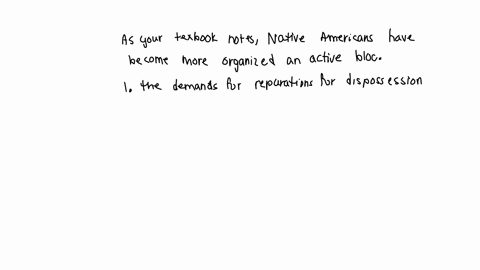 As your texbook notes, Native Americans have
become more organized an active bloc.
1. the demands for reparations for dispossession